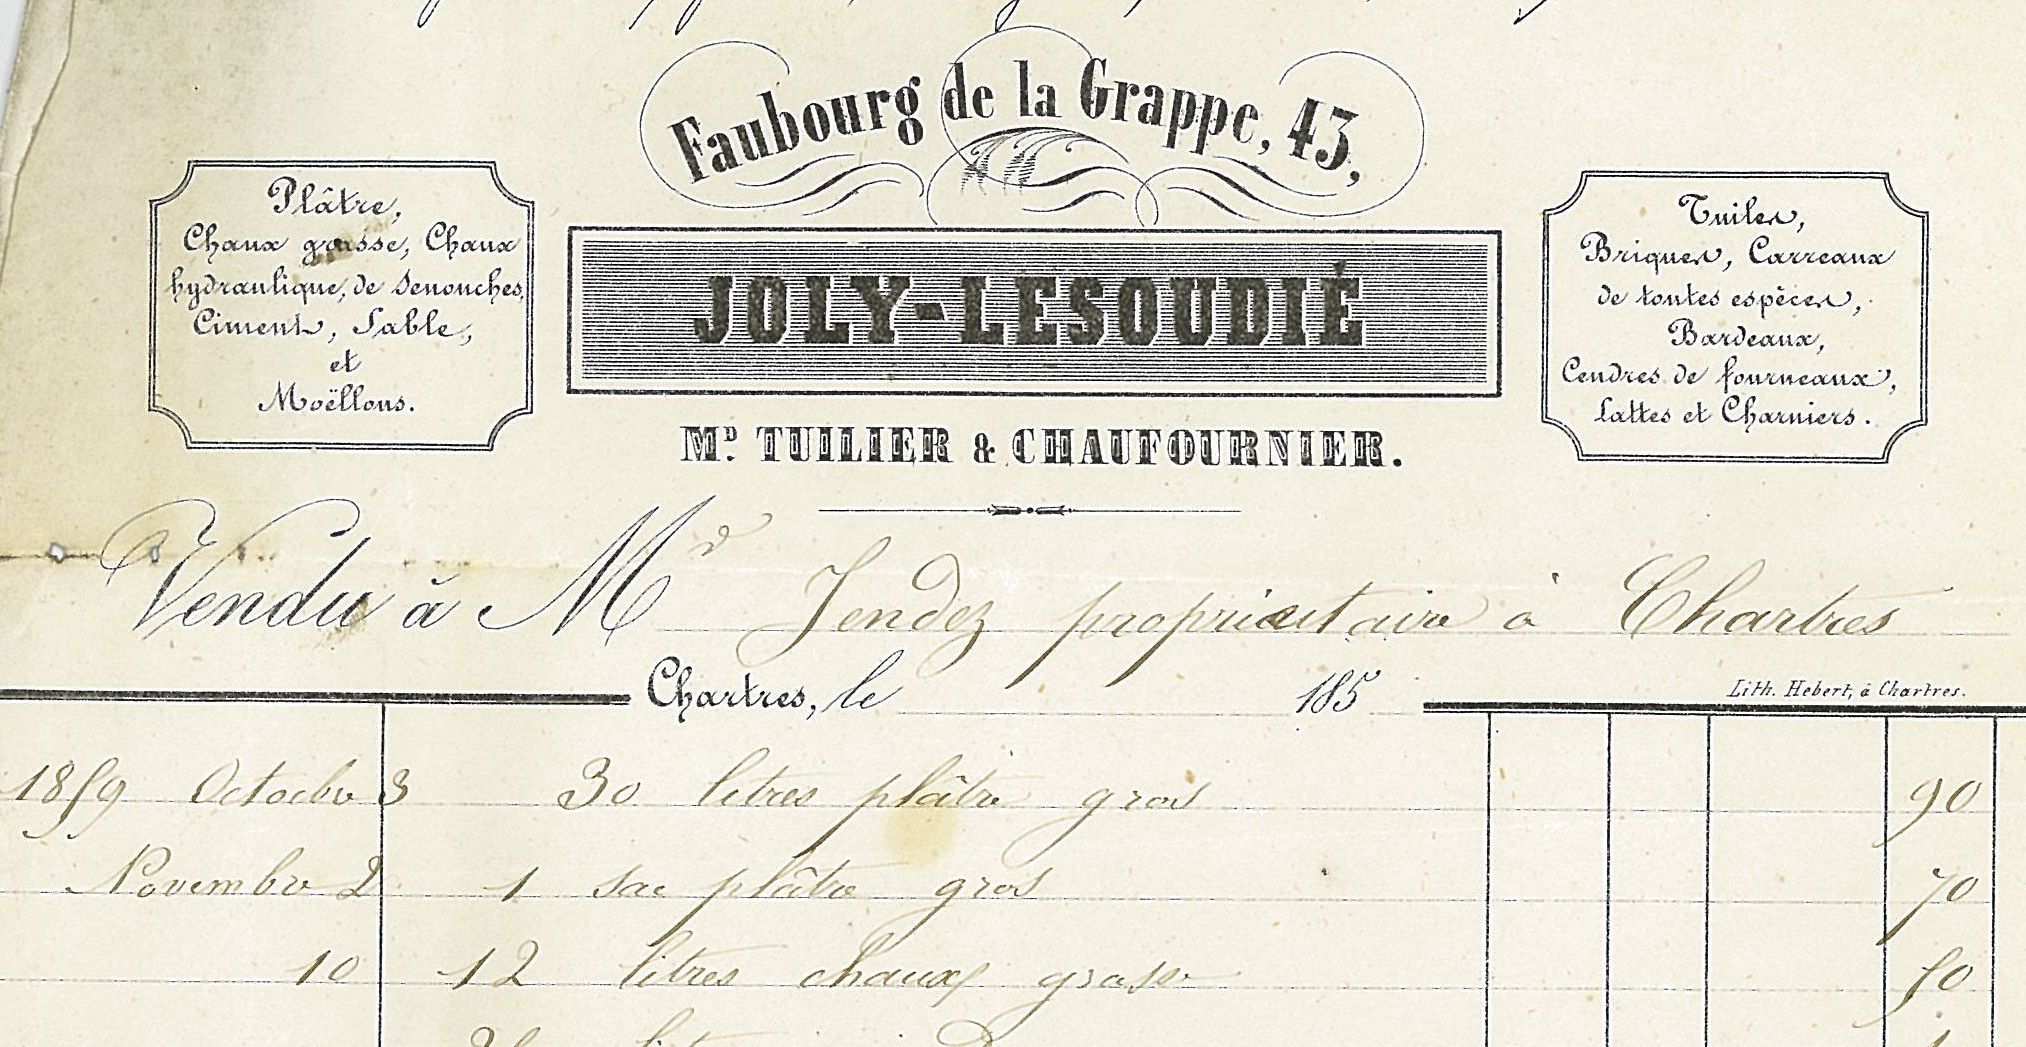 Faubourg de la Grappe, 43,
Plâtre,
Chaux grasse, Chaux
hydraulique, de Senonches,
Ciments, Sable,
et
Moëllons.
JOLY-LESOUDIÉ
Md. TUILIER & CHAUFOURNIER.
Tuiles,
Briques, Carreaux
de toutes espèces,
Bardeaux,
Cendres de fourneaux,
Lattes et Charniers.
Vendu à Md Jendez propriaitaire à Chartres
Chartres, le 185
Lith. Hebert, à Chartres.
1859 Octobre 3 30 litres plâtre gros 90
Novembre 2 1 sac plâtre gros 70
10 12 litres chaux grasse 50